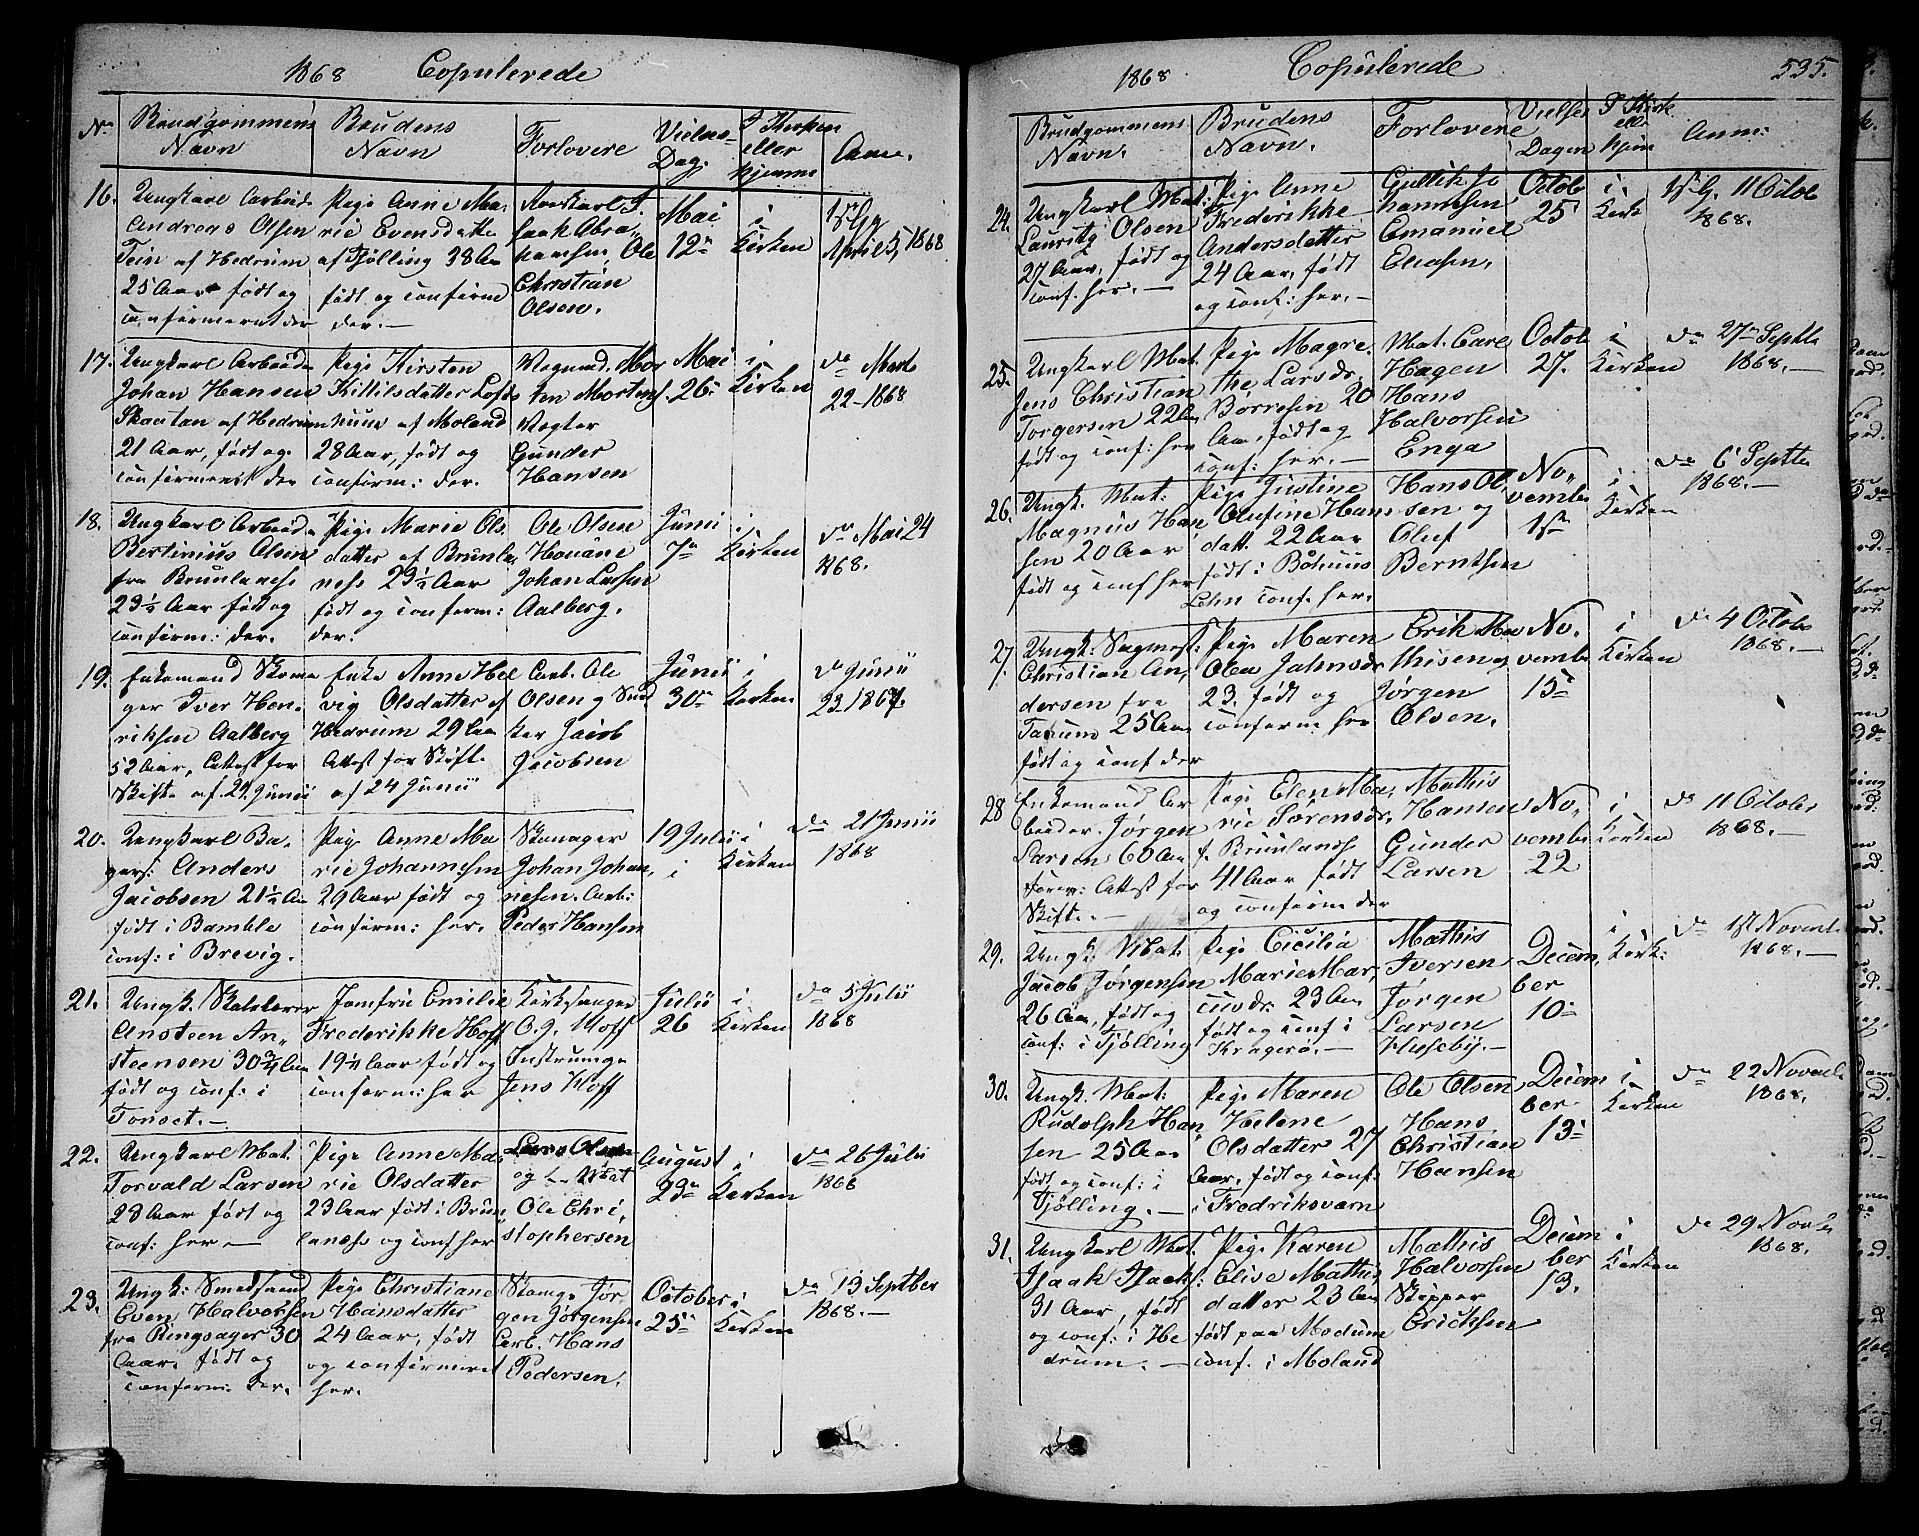 1868 Copulerede
No Brudgommens Navn
Brudens Navn
Forlovere
Vielses Dag.
I Kirken eller hjemme
Anm.
16. Ungkarl Arbeid
Andreas Olsen
Tein af Hedrum
25 Aar født og
confirmeret der
Pige Anne Ma,
rie Evensdatte
af Tjølling 38 Aa
født og confirme
der. —
Ungkarl I,
saak Abra,
hamsen, Ole
Christian
Olsen.
Mai
12te
i
Kirken
1st Gg
April 5, 1868
17. Ungkarl Arbeide
Johan Hansen
Skautan af Hedrum
21 Aar, født og
confirmeret der
Pige Kirsten
Kittilsdatter Lofts
af Moland
28 Aar, født og
confirm: der.
Vognmd. Mor
ten Mortens.
Vegter
Gunder
Hansen
Mai
26
i
Kirken
do Marts
22 - 1868
18. Ungkarl Arbeide
Bertinius Olsen
fra Brunlanese
23 1/2 Aar født og
confirm: der.
Pige Marie Ols
datter af Brunla,
nese 23 1/2 Aar
født og conform:
der.
Ole Olsen
Houåne
Johan Larsen
Aalberg.
Juni
7de
i
Kirken
do Mai 24
1868.
19. Enkemand Skoma
ger Iver Hen,
riksen Aalberg
52 Aar, Attest for
Skifte af 24 Junii
Enke Anne Hel
vig Olsdatter af
Hedrum 29 Aar
Attest for Skift
af 24 Junii
Arb. Ole
Olsen og Smd
ker Jacob
Jacobsen
Junii
30te
i
Kirken
do Junii
23 1867.
20. Ungkarl Ba,
gers: Anders
Jacobsen 21 1/2 Aa
født i Bamble
conf: i Brevig.
Pige Anne Ma
rie Johannesen
29 Aar født og
confirm: her.
Skomager
Johan Johan,
nesen. Arb:
Peder Hansen
19 Julii
i
i
Kirken
do 21 Junii
1868
21. Ungk. Skolelærer
Ansteen An,
steensen 30 3/4 Aar
født og conf: i
Tonset. —
Jomfru Emilie
Frederikke Hoff
19 1/4 Aar født og
confirm: her
Kirksanger
O. J. Hoff
Instrumge
Jens Hoff
Julii
26
i
Kirken
do 5 Julii
1868
22. Ungkarl Mat.
Torvald Larsen
23 Aar født og
conf: her —
Pige Anne Ma,
rie Olsdatter
23 Aar født i Brun
lanese og conf her
Lars Olsen
og Mat
Ole Chri,
stophersen
August
23de
i
Kirken
do 26 Julii
1868
23. Ungk: Smedsvend
Even Halvorsen
fra Ringsager 30
Aar. født og
confirm: der.
Pige Christiane
Hansdatter
24 Aar, født
og confirmeret
her.
Skomg. Jør
gen Jørgensen
Arb. Hans
Pedersen.
October
25de
i
Kirken
do 13 Septber
1868. —
1868 Copulerede 535.
Brudgommens Navn.
Brudens Navn.
Forlovere
Vielses Dagen
I Kirk ell hjem
Anm:
24. Ungkarl Mat:
Lauritz Olsen
27 Aar, født og
conf. her. —
Pige Anne
Frederikke
Andersdatter
24 Aar, født
og conf: her. —
Gullik Jo
hannesen
Emanuel
Eliasen.
Octob
25
i
Kirk
1st G. 11 Octob
1868.
25. Ungkarl Mat.
Jens Christian
Torgersen 22 Aar
født og conf: her
Pige Magre,
the Larsdr.
Børresen 20
Aar, født og
conf: her. —
Mat. Carl
Hagen
Hans
Halvorsen
Enga
Octob
27.
i
Kirken
do 27de Septb
1868. —
26. Ungk. Mat:
Magnus Han
sen 20 Aar
født og conf her
Pige Justine
Olufine Hans
datt. 22 Aar
født i Båhuus
Lehn conf. her.
Hans Ol,
sen og
Oluf
Berntsen
No,
vembr
1ste
i
Kirken
do 6 Septbr
1868. —
27. Ungk: Sagmest:
Christian An,
dersen fra
Tanum 25 Aar
født og conf der
Pige Maren
Olea Jahnsdr
23. født og
confirm her
Erik Ma
thisen og
Jørgen
Olsen.
No,
vembr
15de
i
Kirken
do 4 Octob
1868. —
28 Enkemand Ar
beider. Jørgen
Larsen 60 Aar
Attest for
Skifte. —
Pige Elen Ma,
rie Sørensdr.
f. Brunlanese
41 Aar født
og confirm der
Mathis
Hansen
Gunder
Larsen
No,
vembr
22
i
Kirken
do 11 Octobr
1868. —
29. Ungk. Mat.
Jacob Jørgensen
26 Aar, født og
conf: i Tjølling
Pige Cicilia
Marie Mar,
cusdr. 23 Aar
født og conf i
Kragerø. —
Mathis
Iversen
Jørgen
Larsen
Huseby. —
Decem
ber
10de
i
Kirk:
do 1st Novemb
1868. —
30. Ungk. Mat.
Rudolph Han
sen 25 Aar
født og conf: i
Tjølling. —
Pige Maren
Helene
Olsdatter 27
Aar. født og conf:
i Fredriksværn
Ole Olsen
Hans
Christian
Hansen
Decem
ber
13de
i
Kirken
do 22 Novemb
1868.
31. Ungkarl Mat.
Isaak Isaaks:
31 Aar, født
og conf: i He
drum. —
Pige Karen
Elise Mathis
datter 23 Aar
født paa Modum
conf. i Moland
Mathis
Halvorsen
Skipper
Ericksen
Decem
ber
13.
i
Kirken
do 29 Novb
1868.